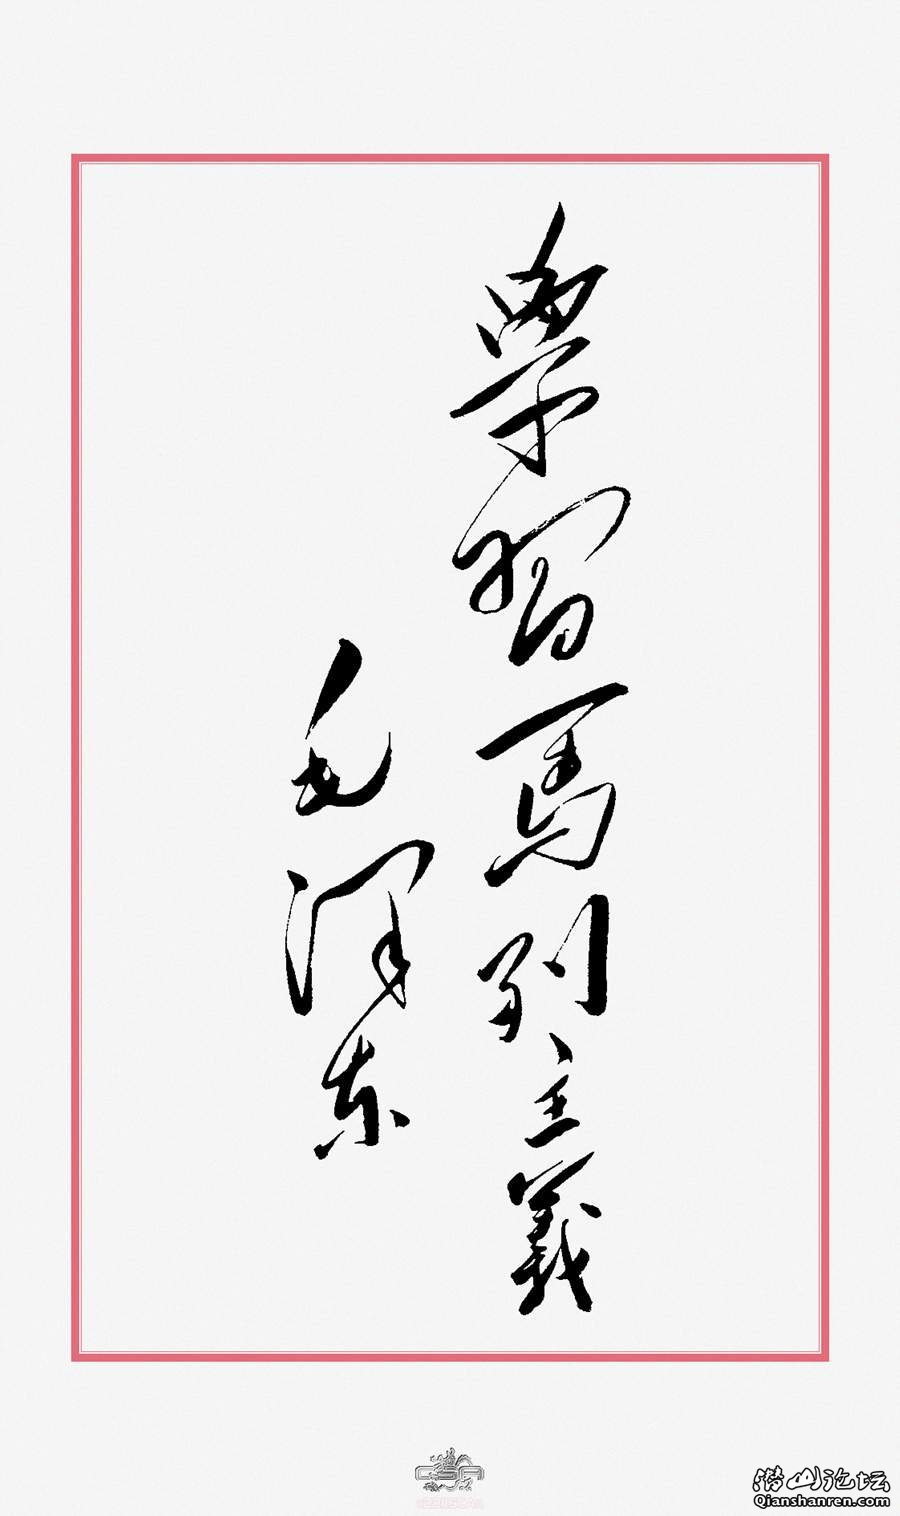 學習馬列主義
毛澤东
潜山论坛
Qianshanren.com